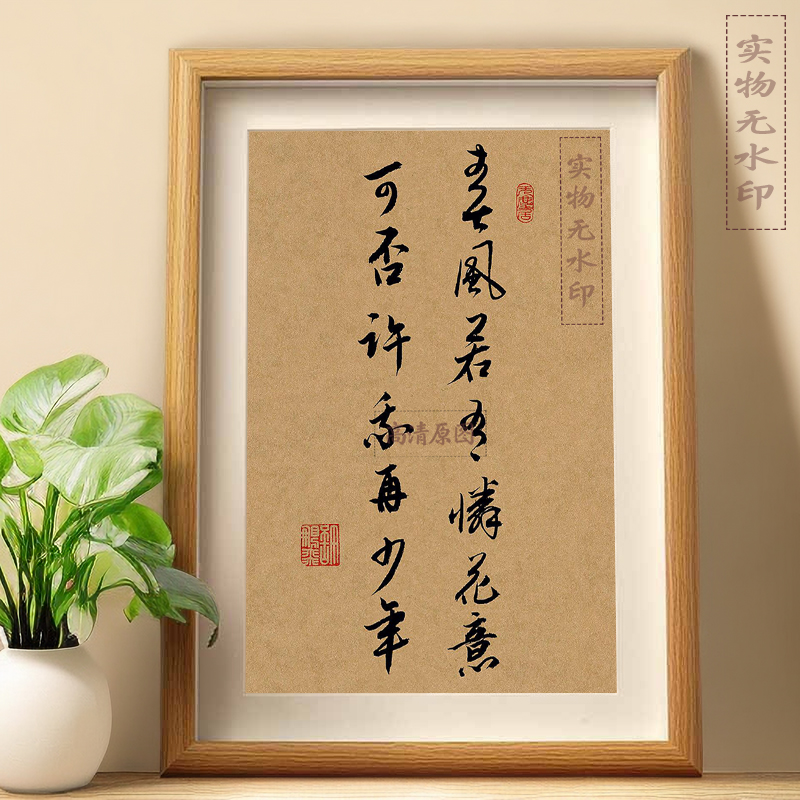 春風若有憐花意
可否許我再少年
实物无水印
实物无水印
高清原图